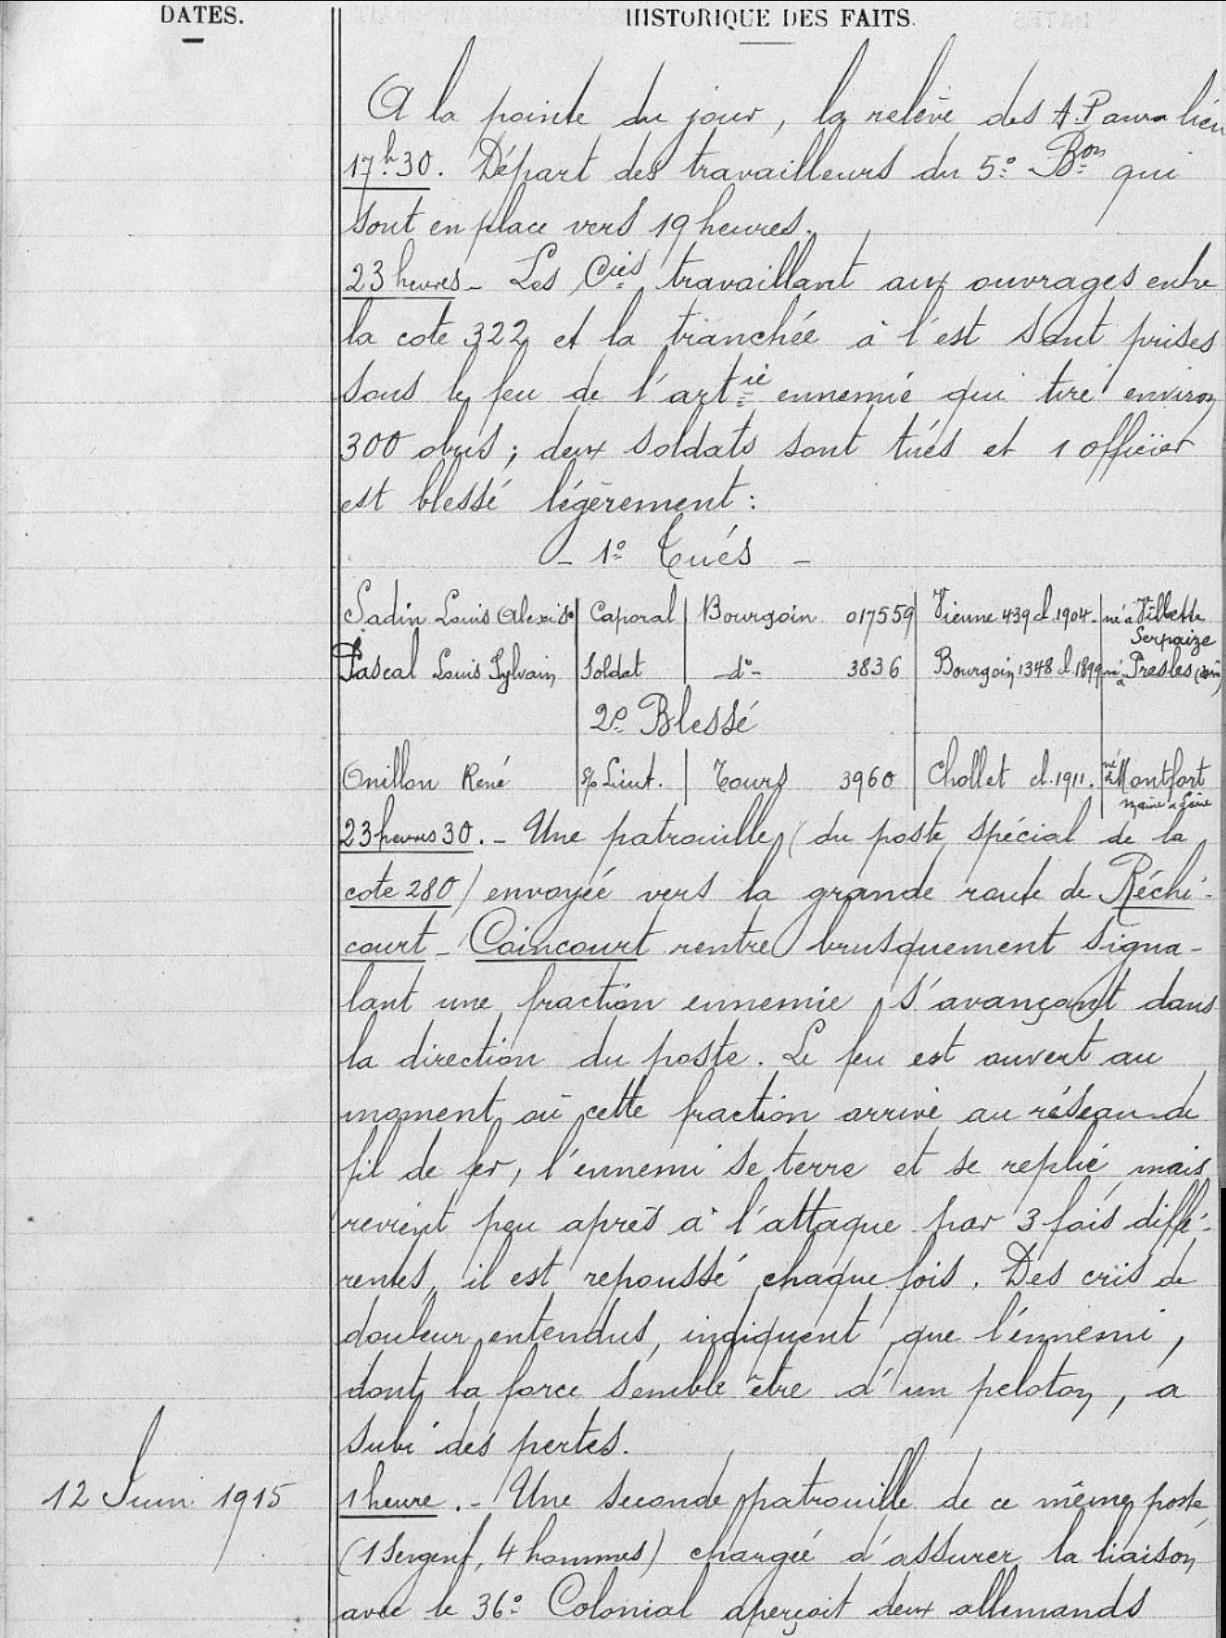 DATES.
HISTORIQUE DES FAITS.
A la pointe du jour, la relève des A.P aura lieu
17h30. Départ des travailleurs du 5e Bon qui
sont en place vers 19 heures.
23 heures - Les Cies travaillant aux ouvrages entre
la cote 322 et la tranchée à l'est sont prises
sous le feu de l'artie ennemie qui tire environ
300 obus ; deux soldats sont tués et 1 officier
est blessé légèrement :
- 1o Tués -
Sadin Louis Alexis Caporal Bourgoin 017559 Vienne 439 cl. 1904 - né à Villette Serpaize
Pascal Louis Sylvain Soldat do- 3836 Bourgoin 1348 cl 1899 né à Presles
2o Blessé
Onillon René s/s Lieut. Tours 3960 Chollet cl. 1911. né à Montfort Maine & Loire
23 heures 30. - Une patrouille (du poste spécial de la
cote 280) envoyée vers la grande route de Réchi-
court - Coincourt rentre brusquement signa-
lant une fraction ennemie s'avançant dans
la direction du poste. Le feu est ouvert au
moment où cette fraction arrive au réseau de
fil de fer, l'ennemi se terre et se replie, mais
revient peu après à l'attaque par 3 fois diffé-
rentes, il est repoussé chaque fois. Des cris de
douleur entendus, indiquent que l'ennemi,
dont la force semble être d'un peloton, a
subi des pertes.
12 Juin 1915
1 heure. - Une seconde patrouille de ce même poste
(1 sergent, 4 hommes) chargée d'assurer la liaison
avec le 36e Colonial aperçoit deux allemands